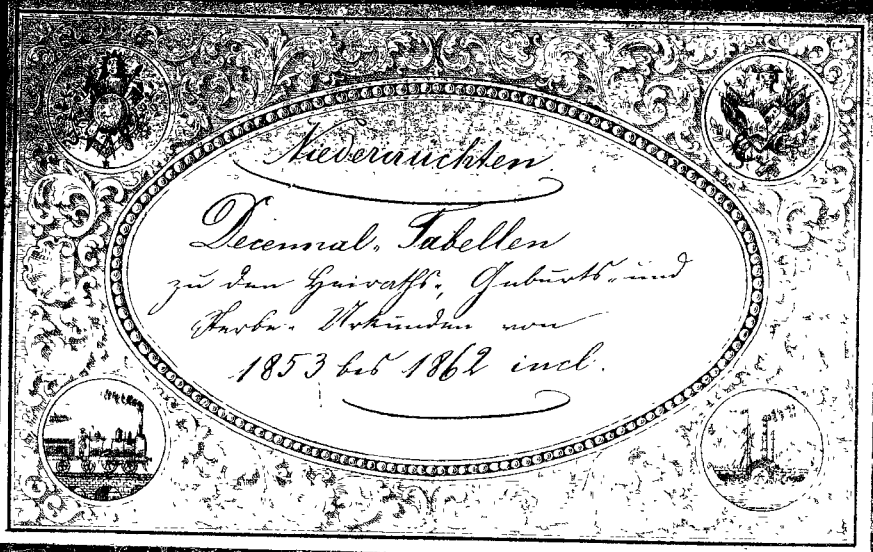 Niederkrüchten
Decennal-Tabellen
zu den Heiraths-, Geburts- und
Sterbe-Urkunden von
1853 bis 1862 incl.